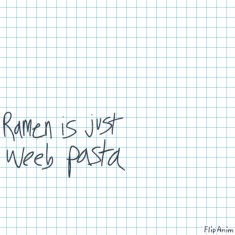 Ramen is just
weeb pasta
FlipAnim